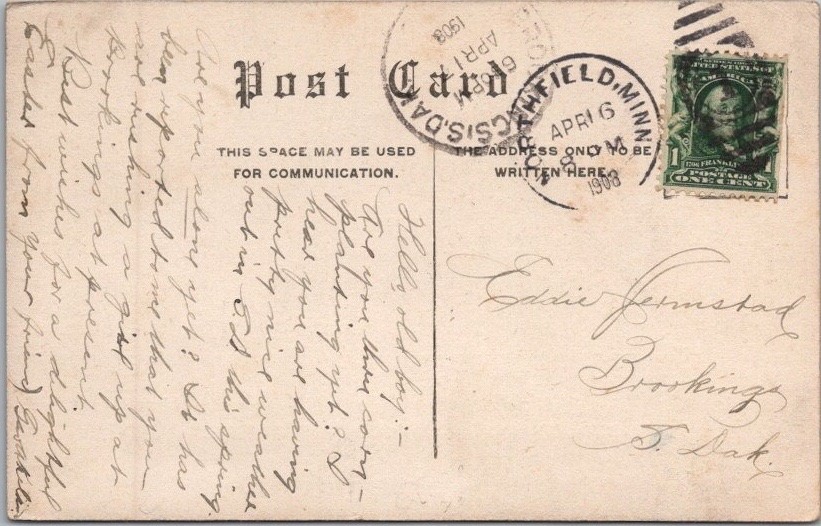 Post Card
THIS SPACE MAY BE USED
FOR COMMUNICATION.
THE ADDRESS ONLY TO BE
WRITTEN HERE.
BROOKINGS, S. DAK.
APR 17
6 PM
1908
NORTHFIELD, MINN
APR 16
8 PM
1908
SERIES 1902
UNITED STATES OF
AMERICA
1706 FRANKLIN
POSTAGE
1 ONE CENT 1
Eddie Jermstad
Brookings
S. Dak.
Hello old boy:-
Are you thru corn-
planting yet? I
hear you are having
pretty nice weather
out in S.D. this spring
Are you alone yet? It has
been reported to me that you
are rushing a girl up at
Brookings at present
Best wishes for a delightful
Easter from your friend